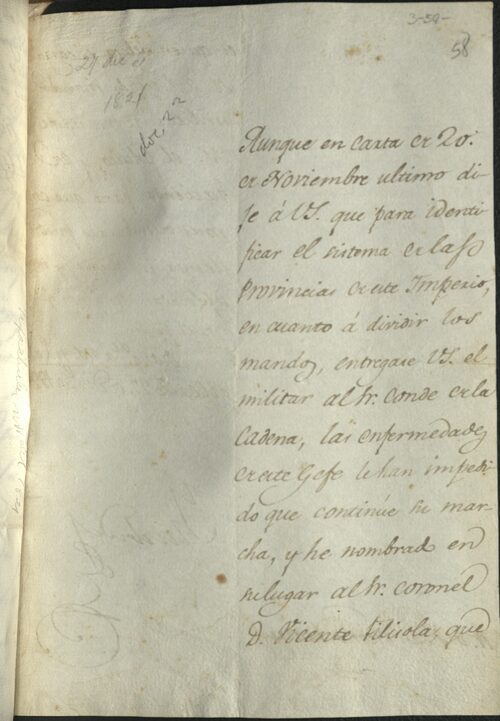 3-59-
58
27 dic e
1821
doc. 22
Aunque en carta de 20.
de Noviembre ultimo di-
je á VS. que para identi-
ficar el sistema de las
Provincias de este Imperio,
en cuanto á dividir los
mandos, entregase VS. el
militar al Sr. Conde de la
Cadena, las enfermedades
de este Gefe le han impedi-
do que continúe su mar-
cha, y he nombrado en
su lugar al Sr. Coronel
D. Vicente Filisola, que